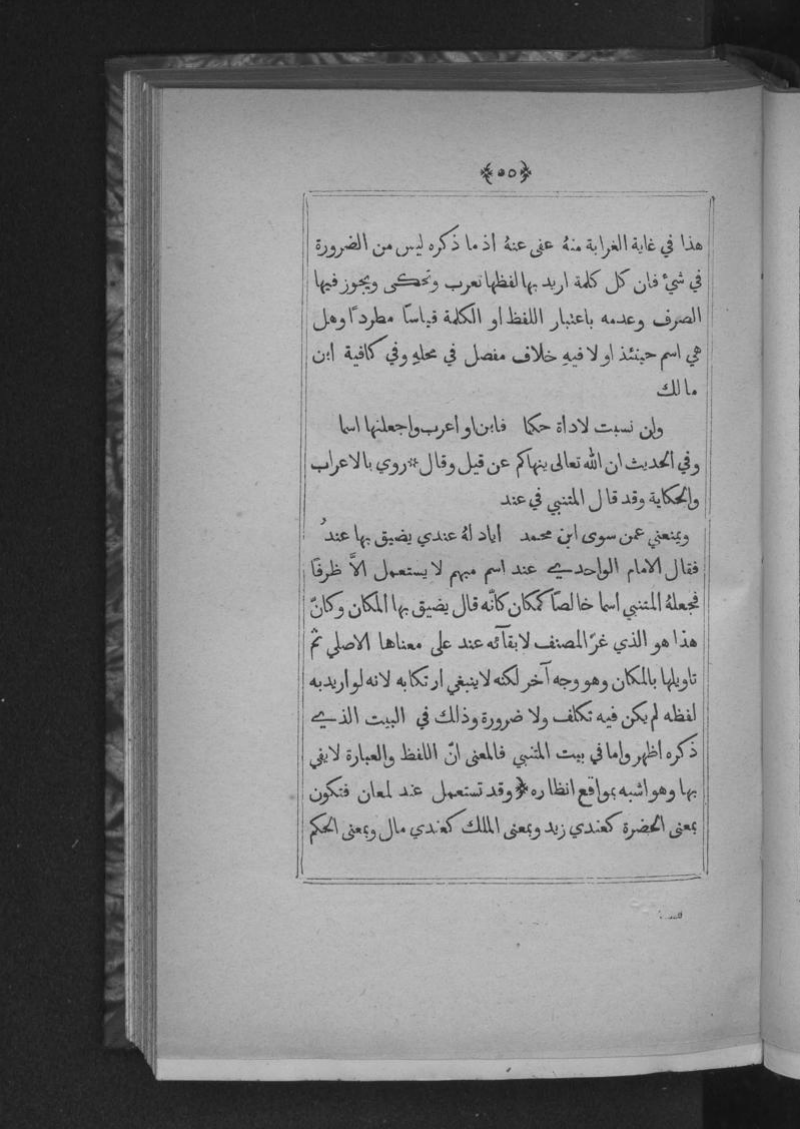 ﴿٥٥﴾
هذا في غاية الغرابة منهُ عفى عنهُ اذ ما ذكره ليس من الضرورة
في شيءٍ فان كل كلمة اريد بها لفظها تعرب وتحكى ويجوز فيها
الصرف وعدمه باعتبار اللفظ او الكلمة قياسًا مطردًا وهل
هي اسم حينئذ او لا فيهِ خلاف مفصل في محلهِ وفي كافية ابن
مالك
وان نسبت لاداة حكما فابن او اعرب واجعلنها اسما
وفي الحديث ان الله تعالى ينهاكم عن قيل وقال * روي بالاعراب
والحكاية وقد قال المتنبي في عند
ويمنعني عمن سوى ابن محمد اياد لهُ عندي يضيق بها عندُ
فقال الامام الواحدي عند اسم مبهم لا يستعمل الاَّ ظرفًا
فجعلهُ المتنبي اسما خالصًا كمكان كانّه قال يضيق بها المكان وكانّ
هذا هو الذي غرّ المصنف لابقآئه عند على معناها الاصلي ثمّ
تاويلها بالمكان وهو وجه آخر لكنه لا ينبغي ارتكابه لانه لو اريد به
لفظه لم يكن فيه تكلف ولا ضرورة وذلك في البيت الذي
ذكره اظهر واما في بيت المتنبي فالمعنى انّ اللفظ والعبارة لا يفي
بها وهو اشبه بمواقع انظاره ﴿ وقد تستعمل عند لمعان فتكون
بمعنى الحضرة كعندي زيد وبمعنى الملك كعندي مال وبمعنى الحكم